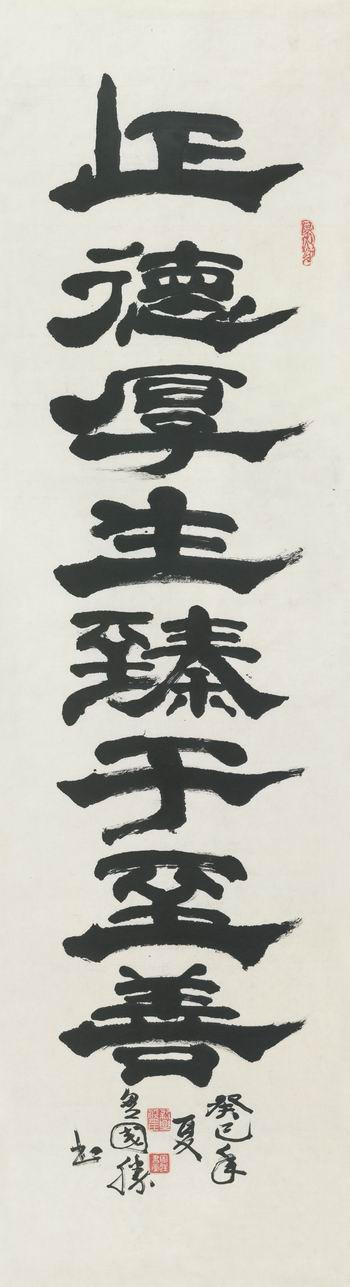 正德厚生臻于至善
癸巳年
夏
國勝
书